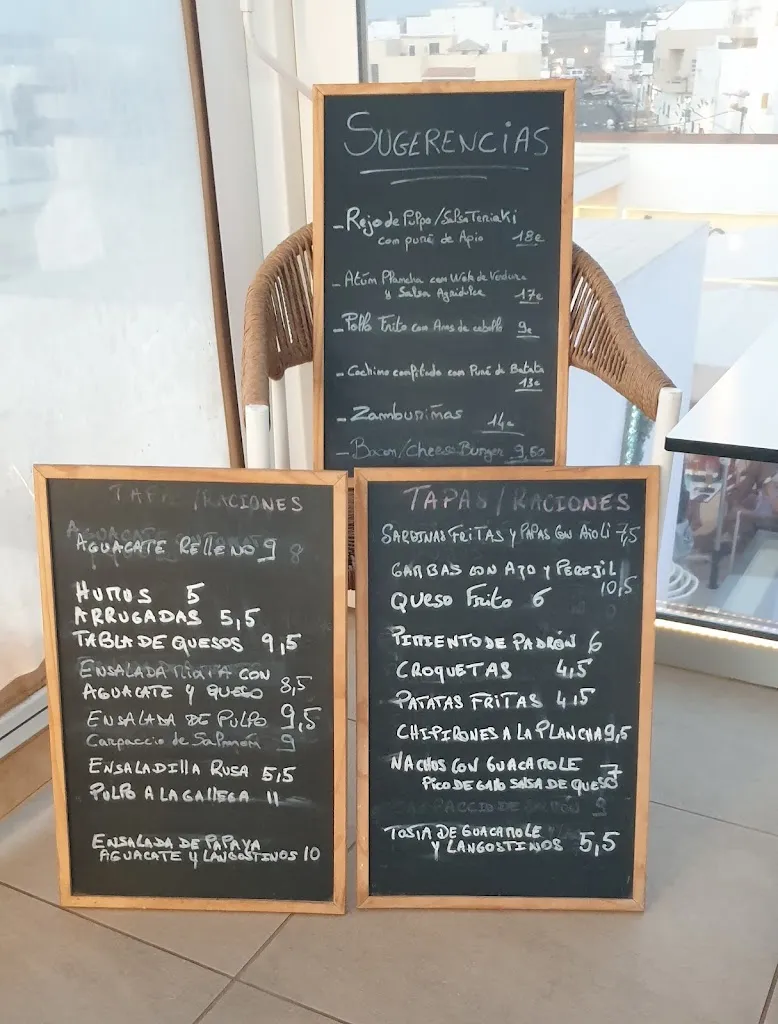 SUGERENCIAS
- Rejo de Pulpo/Salsa Teriaki
con puré de Apio 18€
- Atún Plancha con Wok de Verdura
y Salsa Agridulce 17€
- Pollo Frito con Aros de cebolla 9€
- Cochino confitado con Puré de Batata
13€
- Zamburiñas 14€
- Bacon/Cheese Burger 9,50
TAPAS/RACIONES
AGUACATE RELLENO 9
HUMOS 5
ARRUGADAS 5,5
TABLA DE QUESOS 9,5
ENSALADA MIXTA CON
AGUACATE Y QUESO 8,5
ENSALADA DE PULPO 9,5
Carpaccio de Salmón 9
ENSALADILLA RUSA 5,5
PULPO A LA GALLEGA 11
ENSALADA DE PAPAYA
AGUACATE Y LANGOSTINOS 10
TAPAS/RACIONES
SARDINAS FRITAS Y PAPAS CON AIOLI 7,5
GAMBAS CON AJO Y PEREJIL
10,5
QUESO FRITO 6
PIMIENTO DE PADRÓN 6
CROQUETAS 4,5
PATATAS FRITAS 4,5
CHIPIRONES A LA PLANCHA 9,5
NACHOS CON GUACAMOLE 7
PICO DE GALLO SALSA DE QUESO
CARPACCIO DE SALMÓN 9
TOSTA DE GUACAMOLE
Y LANGOSTINOS 5,5